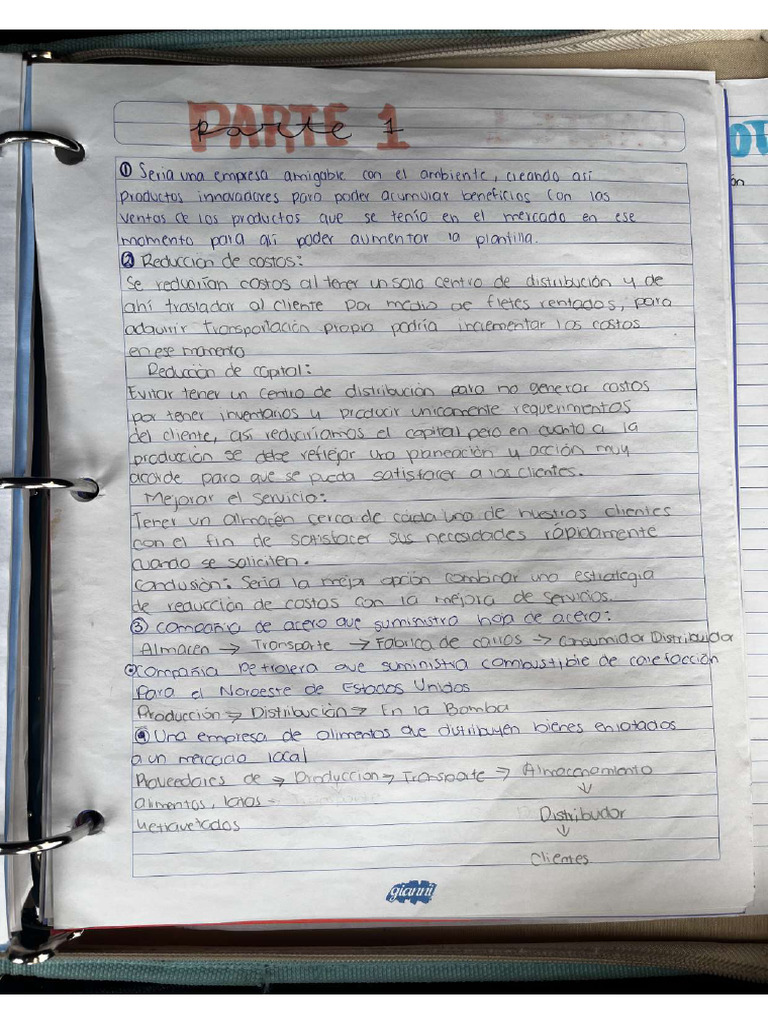 PARTE 1
parte 1
① Seria una empresa amigable con el ambiente, creando asi
productos innovadores para poder acumular beneficios con las
ventas de los productos que se tenía en el mercado en ese
momento para asi poder aumentar la plantilla.
② Reducción de costos:
Se reducirían costos al tener un solo centro de distribución y de
ahí trasladar al cliente por medio de fletes rentados, para
adquirir transportación propia podría incrementar los costos
en ese momento
Reducción de capital:
Evitar tener un centro de distribución para no generar costos
por tener inventarios y producir unicamente requerimentos
del cliente, asi reduciríamos el capital pero en cuanto a la
producción se debe reflejar una planeación y acción muy
acorde para que se pueda satisfacer a los clientes.
Mejorar el servicio:
Tener un almacén cerca de cada uno de nuestros clientes
con el fin de satisfacer sus necesidades rápidamente
cuando se soliciten.
Conclusión: Sería la mejor opción combinar una estrategia
de reducción de costos con la mejora de servicios.
③ Compañia de acero que suministra hoja de acero:
Almacen → Transporte → Fabrica de carros → Consumidor Distribuidor
Compañia Petrolera que suministra combustible de calefacción
para el Noroeste de Estados Unidos
Producción → Distribución → En la Bomba
Una empresa de alimentos que distribuyen bienes enlatados
a un mercado local
Proveedores de → Produccion → Transporte → Almacenamiento
alimentos, latas
y etiquetados
↓
Distribuidor
↓
Clientes
gianni
ón